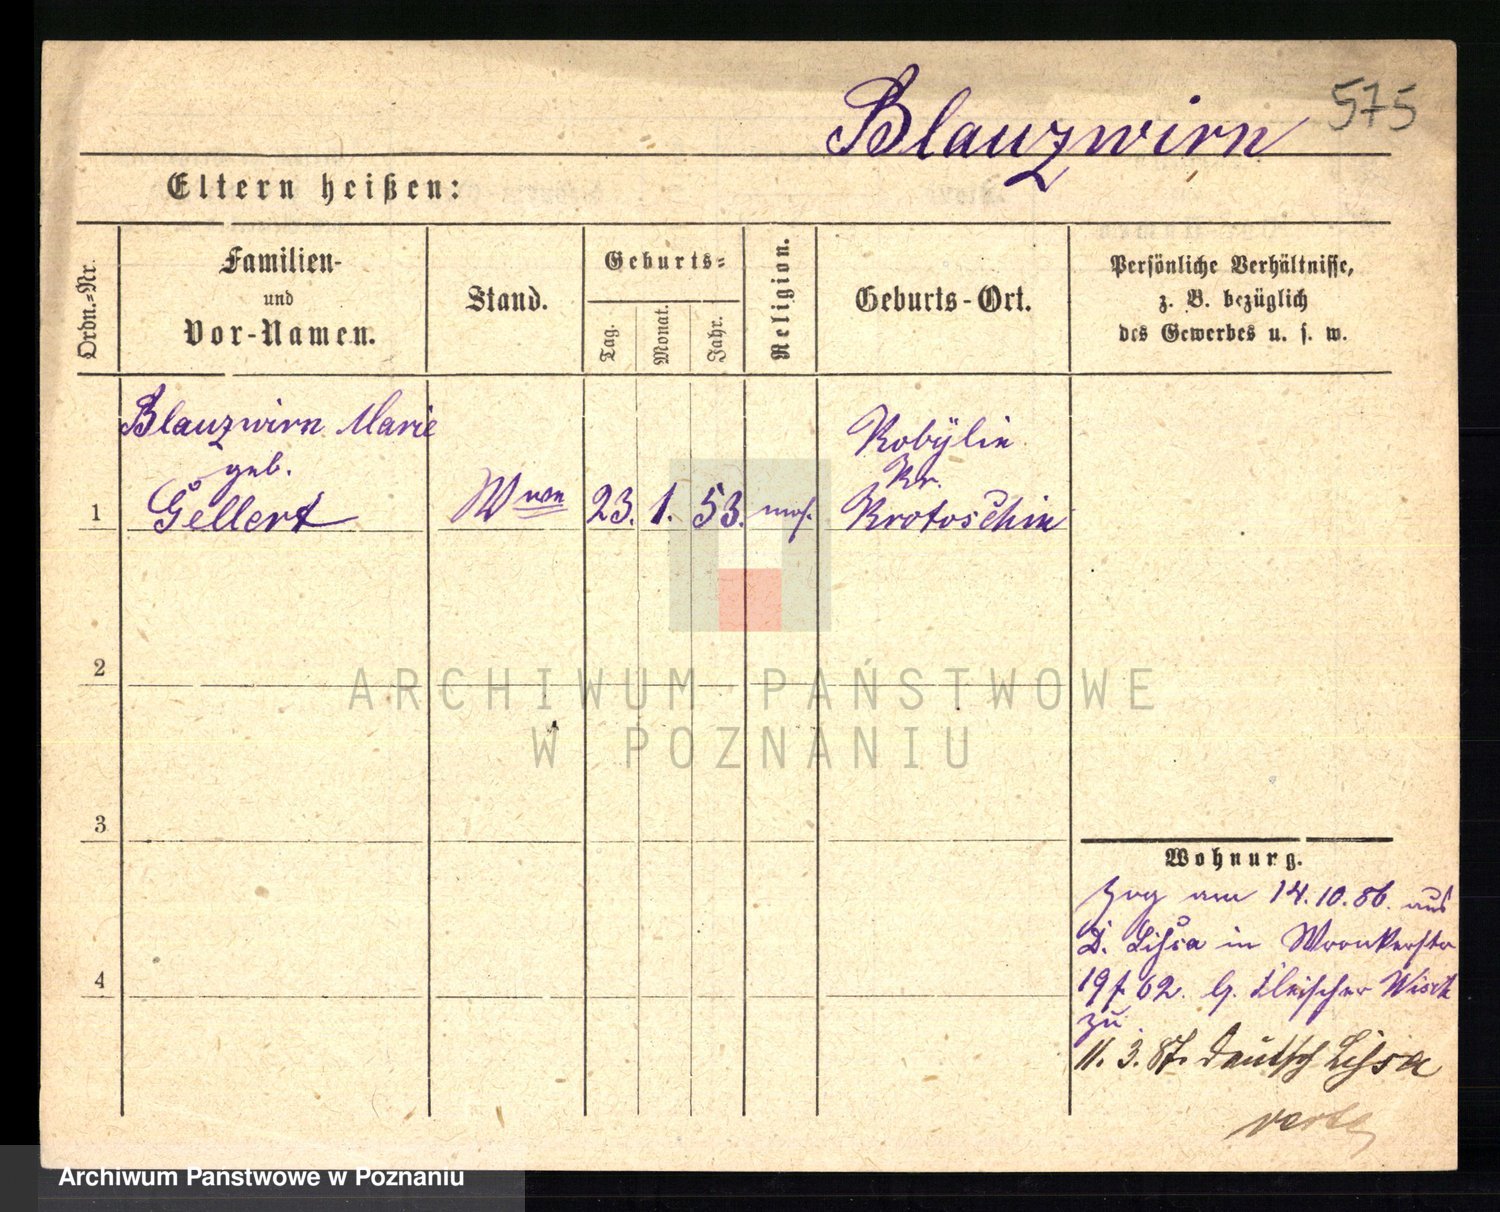 Blauzwirn 575
Eltern heißen:
Ordn.=Nr.
Familien-
und
Vor-Namen.
Stand.
Geburts=
Tag.
Monat.
Jahr.
Religion.
Geburts-Ort.
Persönliche Verhältnisse,
z. B. bezüglich
des Gewerbes u. s. w.
Blauzwirn Marie
geb.
1 Gellert
Wwe 23. 1. 53. mos.
Kobylin
Kr.
Krotoschin
2
3
4
Wohnurg.
Zog am 14.10.86. aus
D. Lissa in Wronkerstr
19 f 62. b. Fleischer
zu
11. 3. 87. Deutsch Lissa
ARCHIWUM PAŃSTWOWE
W POZNANIU
Archiwum Panstwowe w Poznaniu